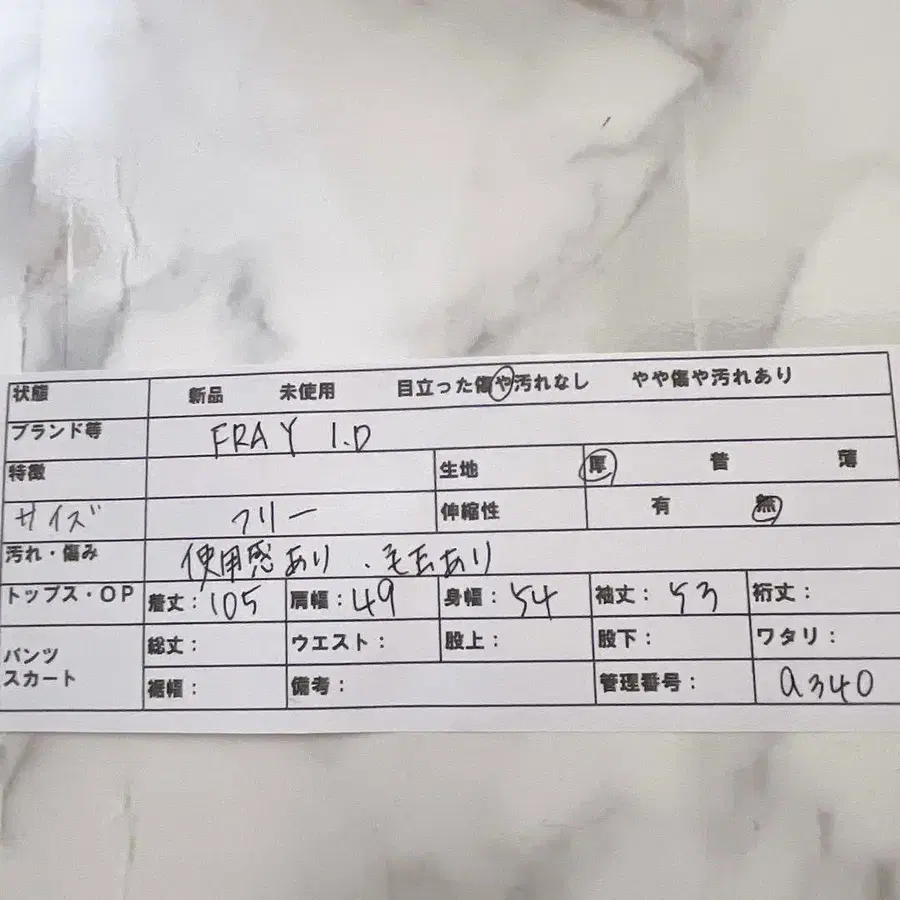 状態 新品 未使用 目立った傷や汚れなし やや傷や汚れあり
ブランド等 FRAY I.D
特徴 生地 厚 普 薄
サイズ フリー 伸縮性 有 無
汚れ・傷み 使用感あり、毛玉あり
トップス・OP 着丈：105 肩幅：49 身幅：54 袖丈：53 裄丈：
パンツ スカート 総丈： ウエスト： 股上： 股下： ワタリ：
裾幅： 備考： 管理番号： a340